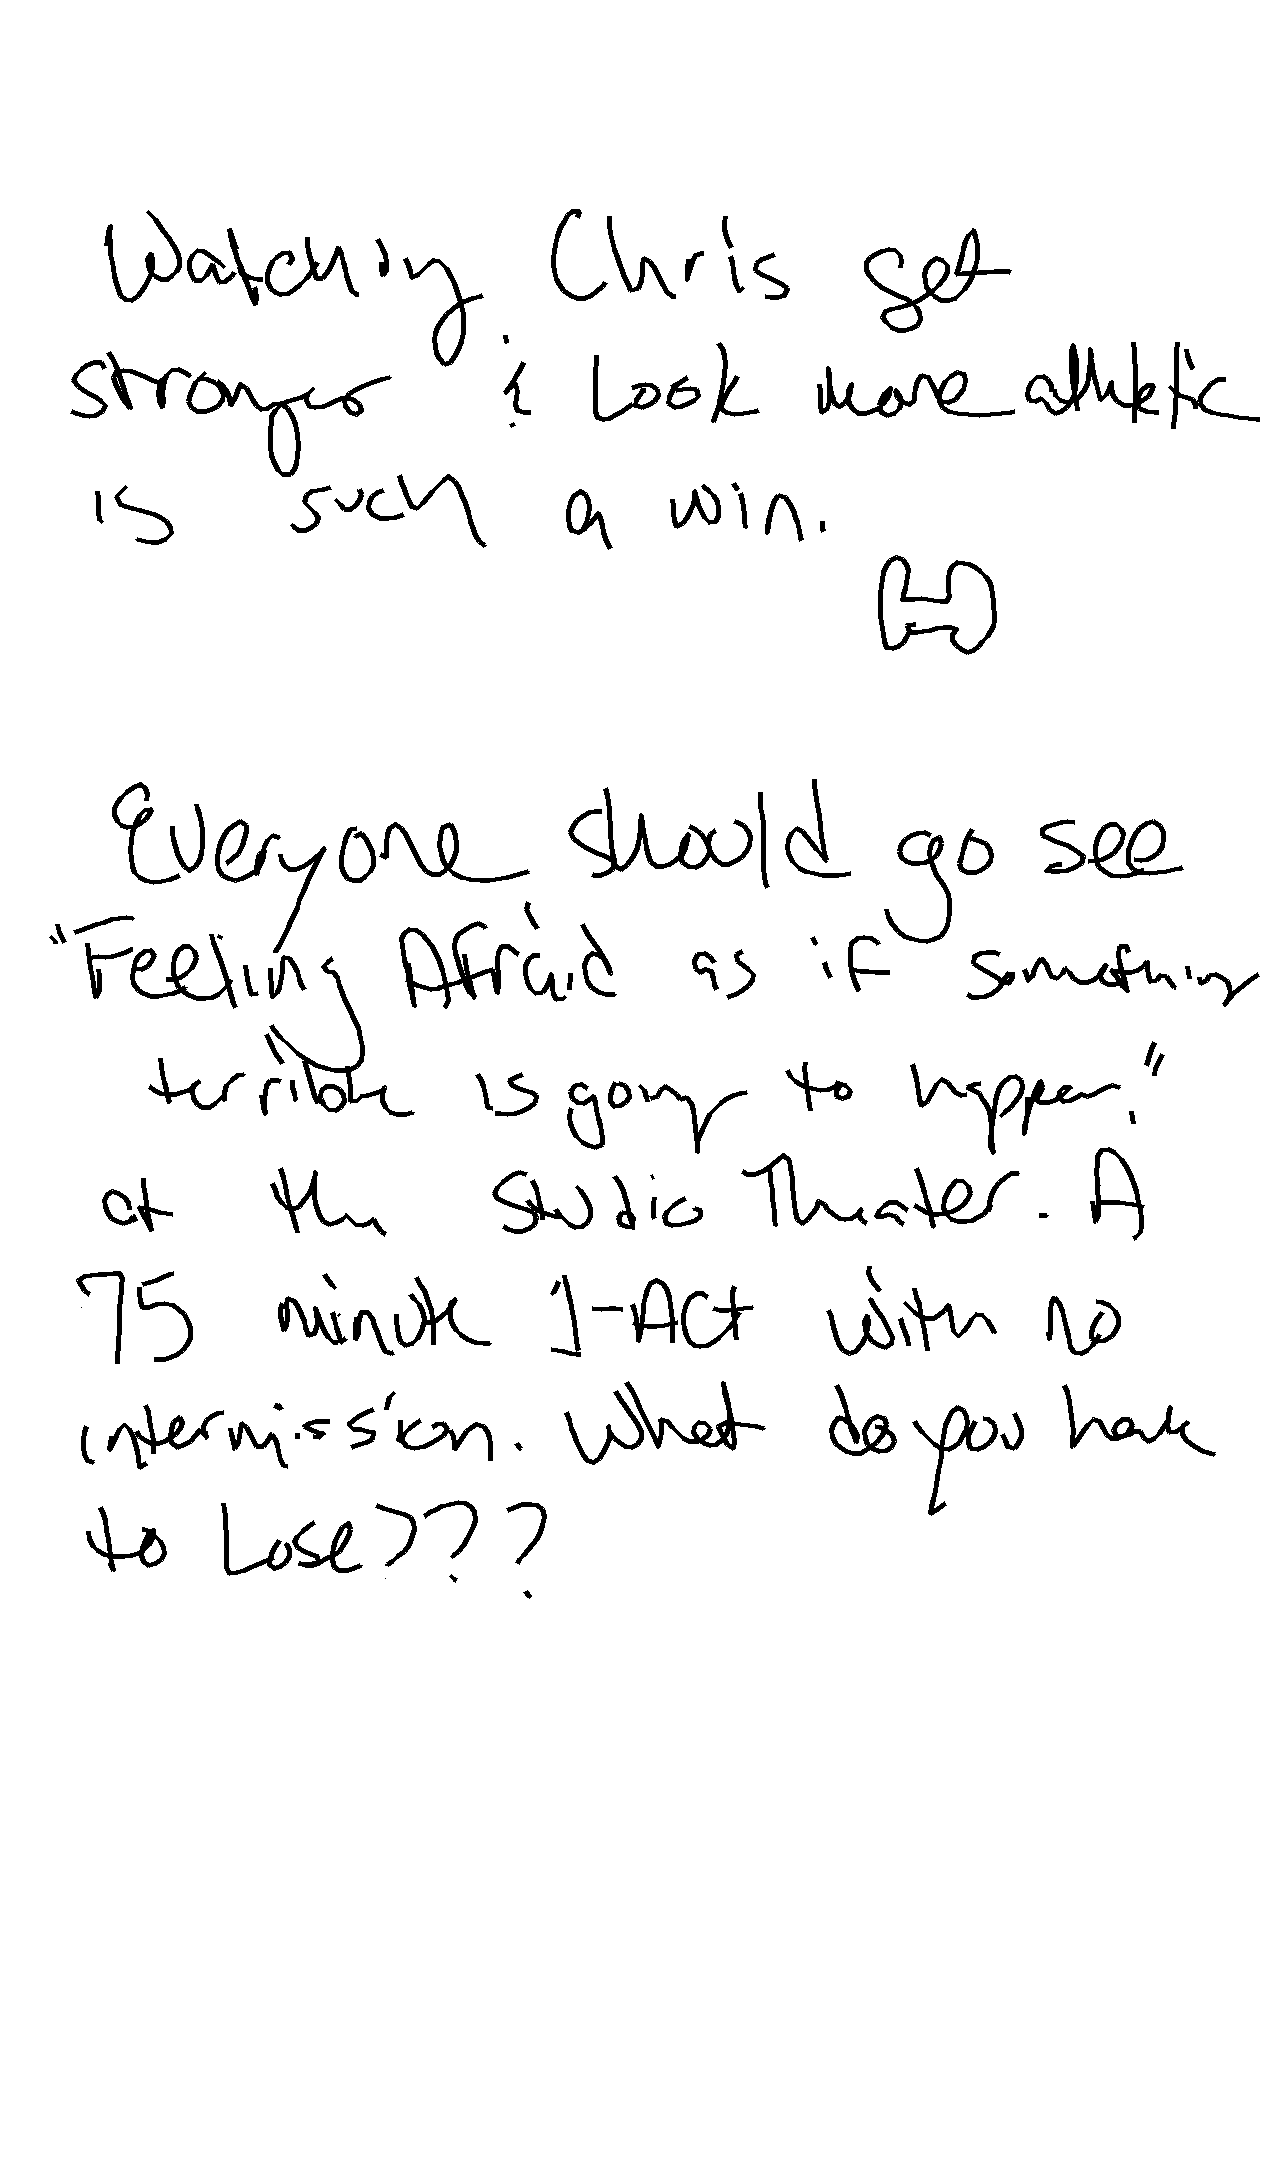 Watching Chris get
stronger & Look more athletic
is such a win.
Everyone should go see
"Feeling Afraid as if something
terrible is going to happen."
at the Studio Theater. A
75 minute 1-Act with no
intermission. What do you have
to Lose???